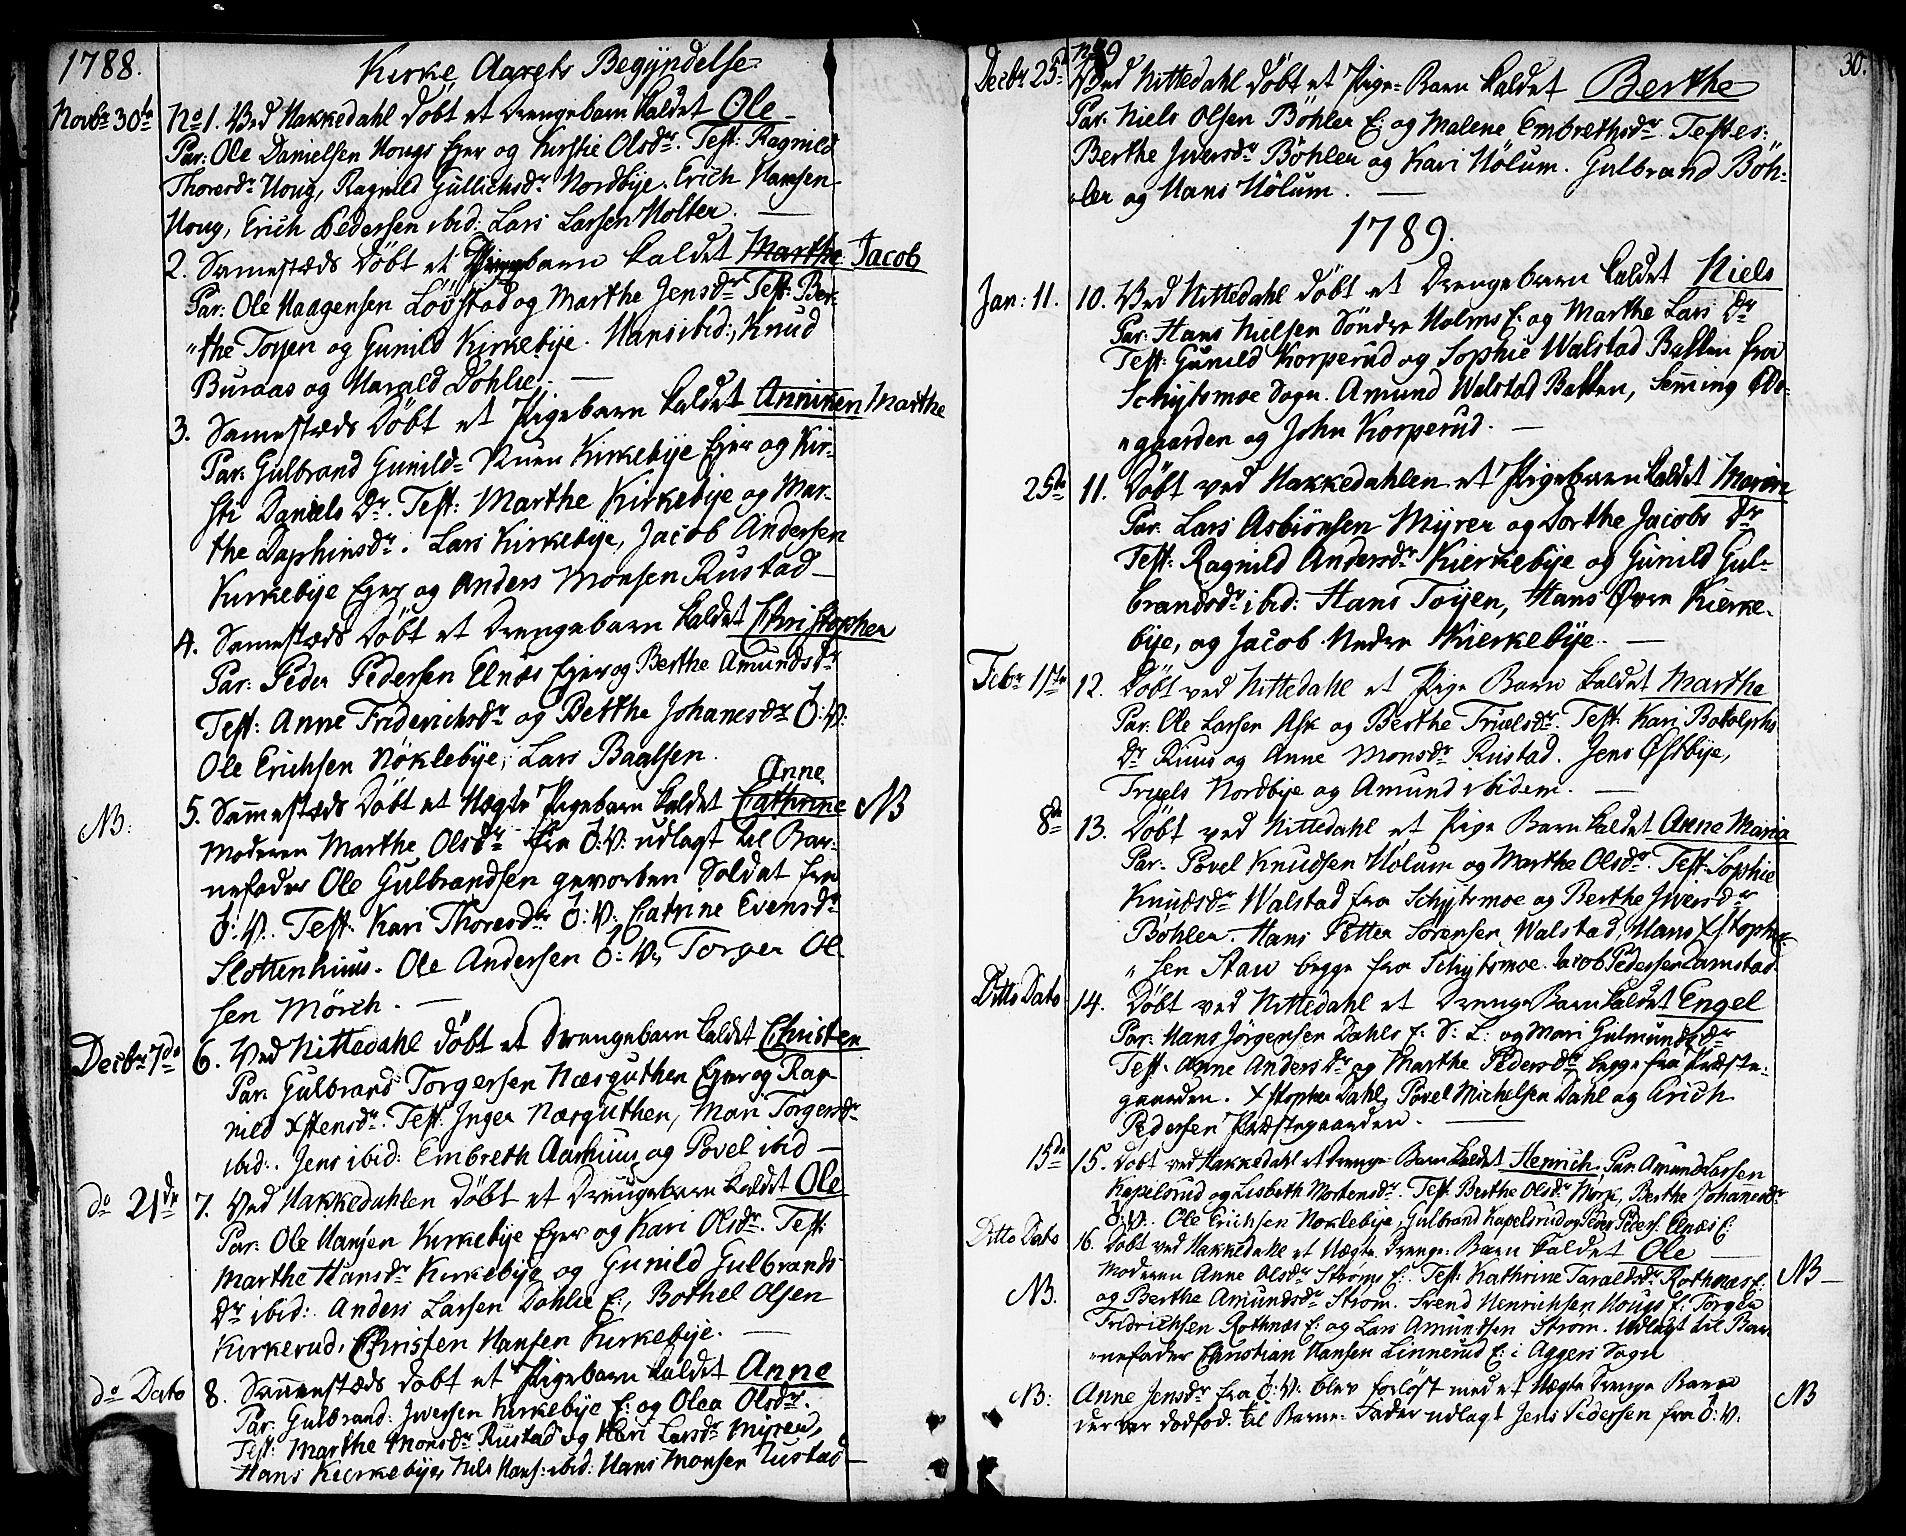 1788. Kirke Aarets Begÿndelse
Novbr 30te No 1. Ved Hakkedahl döbt et Drengebarn kaldet Ole
Par: Ole Danielsen Hougs Ejer og Kirstie Olsdr. Test: Ragnild
Thoresdr Houg, Ragnild Gullichsdr Nordbÿe. Erich Hansen
Houg, Erich Pedersen ibid: Lars Larsen Holter.
2. Sammestæds Döbt et barn kaldet Marthe Jacob
Par: Ole Haagensen Lövstad og Marthe Jensdr Test: Ber-
"the Toÿen og Gunild Kirkebÿe. Hans ibid:, Knud
Buraas og Harald Dohlie.
3. Samestæds Döbt et Pigebarn kaldet Anniken Marthe
Par. Gulbrand Gunild- Ruen Kirkebÿe Ejer og Kir-
sti Daniels Dr. Test: Marthe Kirkebÿe og Mar-
the Daphinsdr. Lars Kirkebÿe, Jacob Andersen
Kirkebÿe Ejer og Anders Monsen Rustad
4. Samestæds Döbt et Drengebarn kaldet Christopher
Par: Peder Pedersen Elnæs Ejer og Berthe Amundsdr
Test: Anne Friderichsdr og Berthe Johanesdr Ö: V:
Ole Erichsen Nöklebÿe, Lars Baalsen.
Anne
NB: 5. Sammestæds Döbt et Uægte Pigebarn kaldet Cathrine NB
Moderen Marthe Olsdr fra Ö: V: udlagt til Bar-
nefader Ole Gulbrandsen gevorben Soldat fra
Ö: V. Test: Kari Thoresdr Ö: V: Catrine Evensdr
Slottenhuus. Ole Andersen Ö: V:, Torger Ol-
sen Mörch.
Decbr 7de 6. Ved Nittedahl döbt et Drengebarn kaldet Christen
Par. Gulbrand Torgersen Næsguthen Ejer og Rag-
nild Xstensdr. Test: Inger Næsguthen, Mari Torgersdr
ibid:. Jens ibid: Embreth Aarhuus og Povel ibid
do 21de 7. Ved Hakkedahlen döbt et Drengebarn kaldet Ole
Par: Ole Hansen Kirkebÿe Ejer og Kari Olsdr. Test:
Marthe Hansdr Kirkebÿe og Gunild Gulbrands
Dr ibid: Anders Larsen Dahlie E:, Bothel Olsen
Kirkerud, Christen Hansen Kirkebÿe.
do Dato 8. Sammestæds döbt et Pigebarn kaldet Anne
Par: Gulbrand: Iversen Kirkebÿe E: og Olea Olsdr.
Test: Marthe Monsdr Rustad og Kari Larsdr Mÿren,
Hans Kierkebÿe, Nils Hans: ibid: Hans Monsen Rustad
30.
Decbr 25de No 9 Ved Nittedahl döbt et Pige-Barn kaldet Berthe
Par. Niels Olsen Böhler E: og Malene Embrethsdr Testes:
Berthe Iversdr Böhler og Kari Hölum. Gulbrand Böh-
"ler og Hans Hölum.
1789.
Jan: 11. 10. Ved Nittedahl döbt et Drengebarn kaldet Niels
Par. Hans Nielsen Söndre Holms E: og Marthe Lars Dr
Test: Gunild Korperud og Sophie Walstad Bakken fra
Schÿtsmoe Sogn. Amund Walstad Bakken, Hemming Öde-
"gaarden og John Korperud.
25de 11. Döbt ved Hakkedahlen et Pigebarn kaldet Maren
Par. Lars Asbiönsen Mÿrer og Dorthe Jacobs Dr
Test: Ragnild Andersdr Kierkebÿe og Gunild Gul-
brandsdr ibid: Hans Toÿen, Hans Øvre Kierke-
bÿe, og Jacob Nedre Kierkebÿe.
Febr 1ste 12. Döbt ved Nittedahl et Pige Barn kaldet Marthe
Par: Ole Larsen Ask og Berthe Truelsdr. Test: Kari Botolphs
Dr Ruus og Anne Monsdr Rustad. Jens Østbÿe,
Truels Nordbÿe og Amund ibidem.
8de 13. Döbt ved Nittedahl et Pige Barn kaldet Anne Maria
Par. Povel Knudsen Hölum og Marthe Olsdr. Test: Sophie
Knudsdr Walstad fra Schÿtsmoe og Berthe Iversdr
Böhler. Hans Petter Sörensen Walstad, Hans Xstopher-
"sen Stau begge fra Schÿtsmoe. Jacob Pedersen Lamstad
Ditto Dato 14. Döbt ved Nittedahl et Drenge Barn kaldet Engel
Par: Hans Jörgensen Dahls E: S: L: og Mari Gulmundsdr
Test. Anne Anders Dr og Marthe Pedersdr begge fra Præste-
gaarden. Xstopher Dahl, Povel Michelsen Dahl og Erich
Pedersen Præstegaarden.
15de 15. Döbt ved Hakkedahl et Drenge-Barn kaldet Henrich. Par. Amund Larsen
Kapelsrud og Lisbeth Mortensdr. Test: Berthe Olsdr Mörk, Berthe Johanesdr
Ö: V:. Ole Erichsen Nöklebÿe, Gulbrand Kapelsrud og Peder Peders: Elnæs E:
Ditto Dato 16. Döbt ved Hakkedahl et Uægte Drenge-Barn kaldet Ole
Moderen Anne Olsdr Ströms E: Test: Kathrine Taraldsdr Rothnæs E: NB
NB. og Berthe Amundsdr Ström. Svend Henrichsen Hougs E: Torger
Fridrichsen Rothnæs E: og Lars Amundsen Ström. Udlagt til Bar-
"nefader Christian Hansen Linnerud E: i Aggers Sogn
NB: Anne Jensdr fra Ö: V: blev forlöst med et Uægte Drenge Barn NB
der var dödfød. til Barne-Fader udlagt Jens Pedersen fra Ö: V: